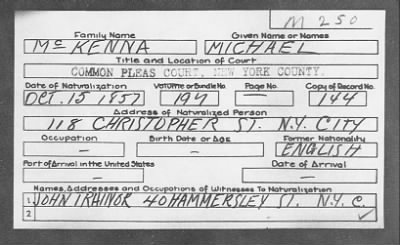 M 250
Family Name Given Name or Names
McKENNA MICHAEL
Title and Location of Court
COMMON PLEAS COURT, NEW YORK COUNTY.
Date of Naturalization Volume or Bundle No. Page No. Copy of Record No.
OCT. 15 1857 197 — 144
Address of Naturalized Person
118 CHRISTOPHER ST. N.Y. CITY
Occupation Birth Date or Age Former Nationality
— — ENGLISH
Port of Arrival in the United States Date of Arrival
— —
Names, Addresses and Occupations of Witnesses To Naturalization
1 JOHN TRAINOR 40 HAMMERSLEY ST. N.Y. C.
2 ✓